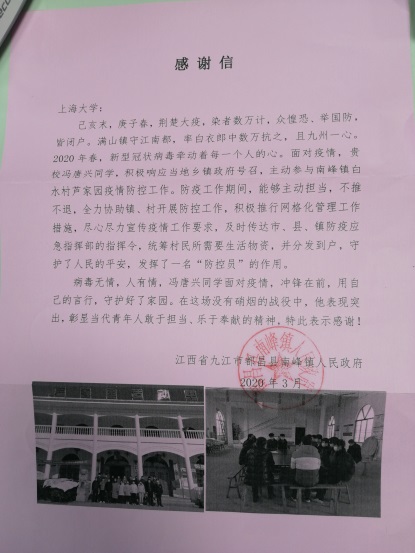 感谢信
上海大学：
己亥末，庚子春，荆楚大疫，染者数万计，众惶恐、举国防，
皆闭户。满山镇守江南都，率白衣郎中数万抗之，且九州一心。
2020年春，新型冠状病毒牵动着每一个人的心。面对疫情，贵
校冯唐兴同学，积极响应当地乡镇政府号召，主动参与南峰镇白
水村芦家园疫情防控工作。防疫工作期间，能够主动担当，不推
不退，全力协助镇、村开展防控工作，积极推行网格化管理工作
措施，尽心尽力宣传疫情工作要求，及时传达市、县、镇防疫应
急指挥部的指挥令，统筹村民所需要生活物资，并分发到户，守
护了人民的平安，发挥了一名“防控员”的作用。
病毒无情，人有情，冯唐兴同学面对疫情，冲锋在前，用自
己的言行，守护好了家园。在这场没有硝烟的战役中，他表现突
出，彰显当代青年人敢于担当、乐于奉献的精神，特此表示感谢！
江西省九江市都昌县南峰镇人民政府
2020年3月